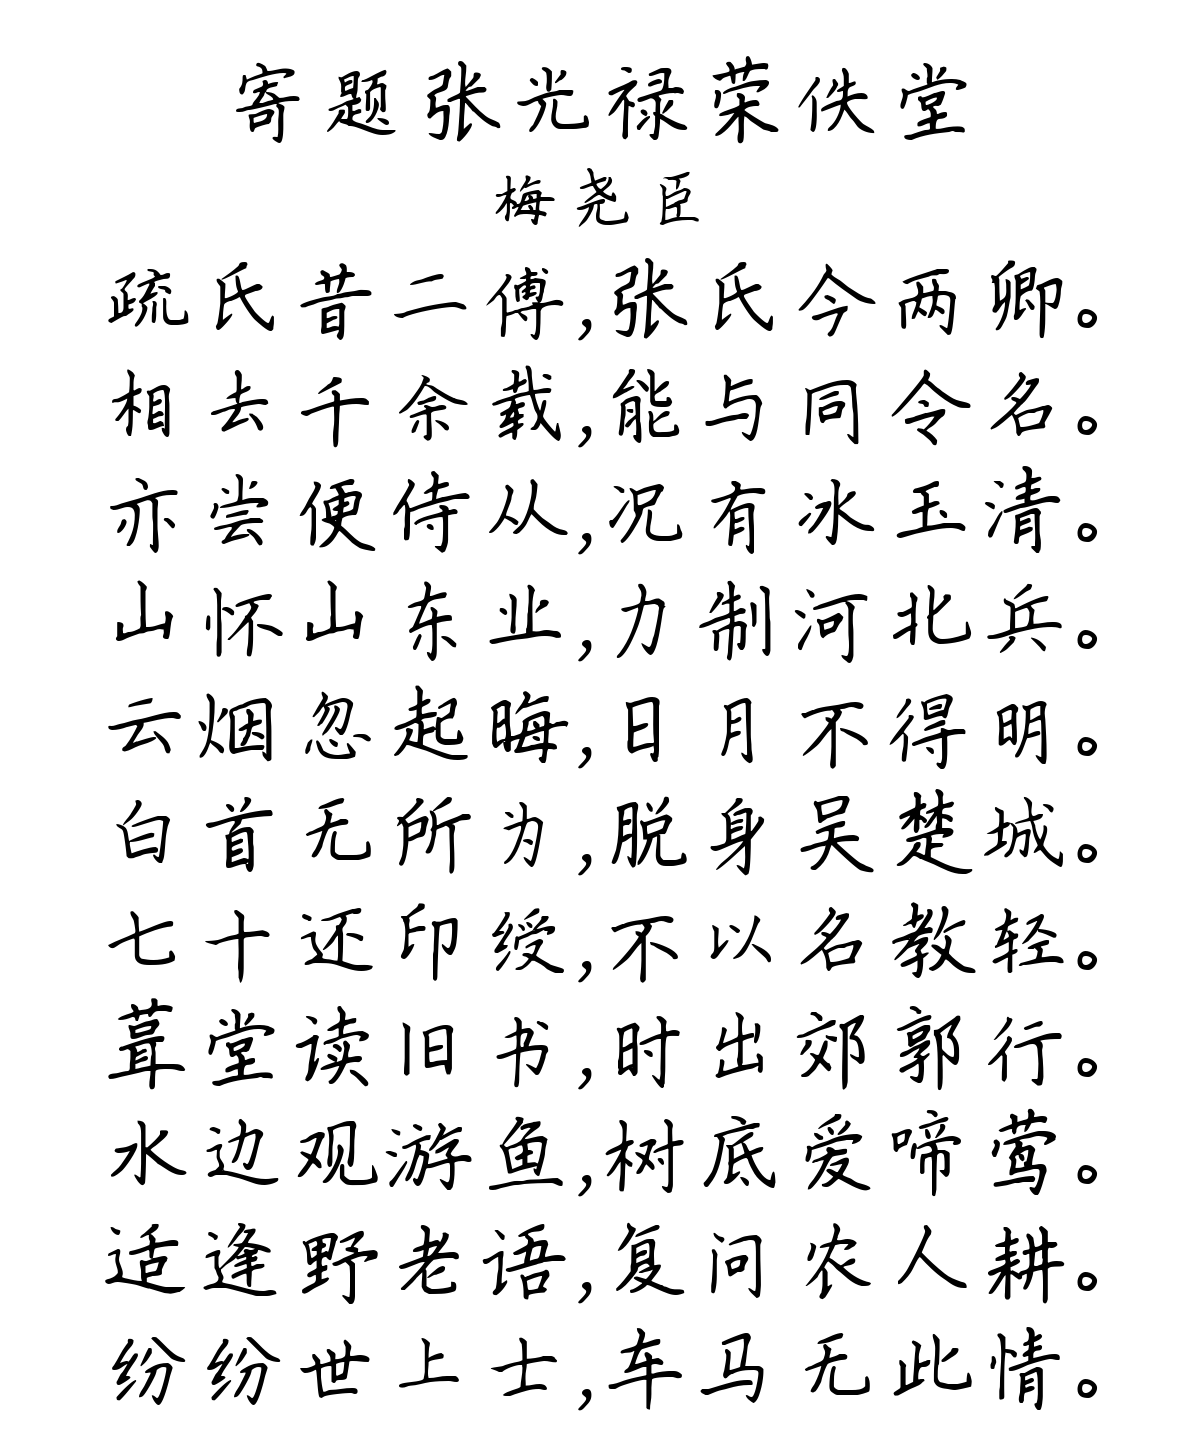 寄题张光禄荣佚堂
梅尧臣
疏氏昔二傅,张氏今两卿。
相去千余载,能与同令名。
亦尝便侍从,况有冰玉清。
山怀山东业,力制河北兵。
云烟忽起晦,日月不得明。
白首无所为,脱身吴楚城。
七十还印绶,不以名教轻。
葺堂读旧书,时出郊郭行。
水边观游鱼,树底爱啼莺。
适逢野老语,复问农人耕。
纷纷世上士,车马无此情。